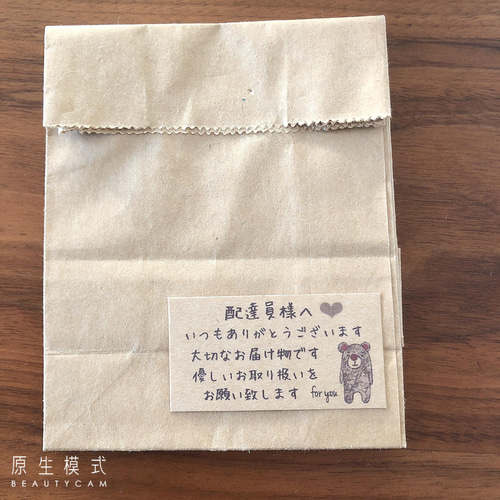 配達員様へ
いつもありがとうございます
大切なお届け物です
優しいお取り扱いを
お願い致します for you
原生模式
BEAUTYCAM